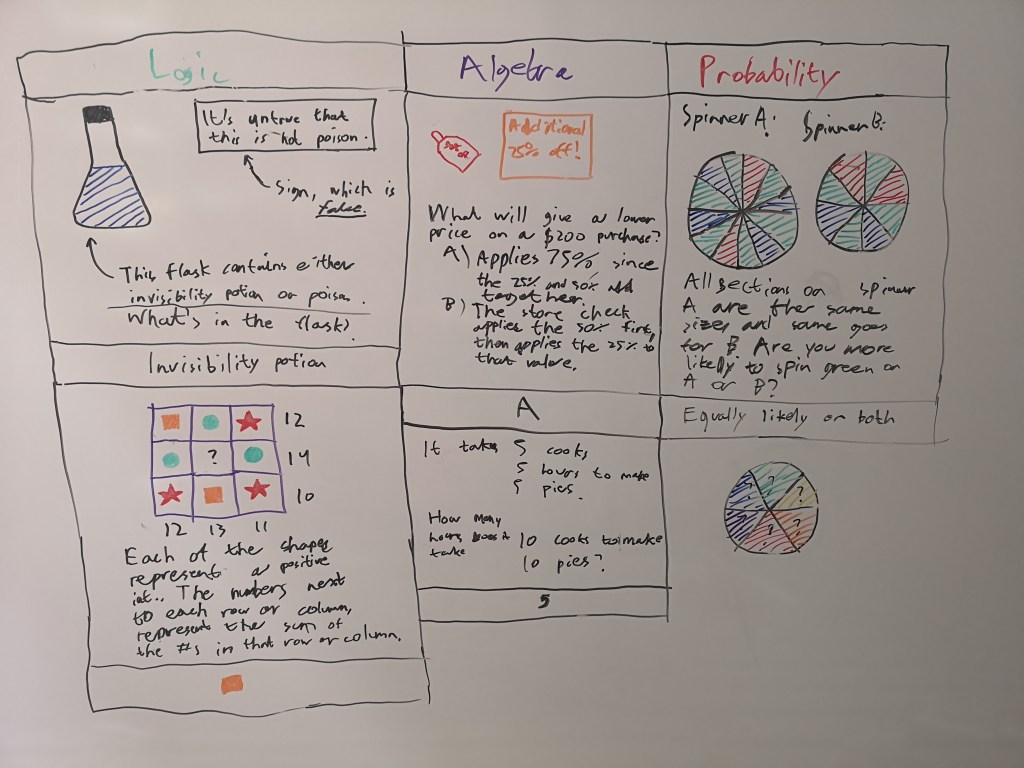 Logic
It's untrue that
this is not poison.
Sign, which is
false.
This flask contains either
invisibility potion or poison.
What's in the flask?
Invisibility potion
12
? 14
10
12 13 11
Each of the shapes
represent a positive
int.. The numbers next
to each row or column,
represents the sum of
the #s in that row or column.
Algebra
50% off
Additional
25% off!
What will give a lower
price on a $200 purchase?
A) Applies 75% since
the 25% and 50% add
together.
B) The store check
applies the 50% first,
then applies the 25% to
that value.
A
It takes 5 cooks
5 hours to make
5 pies.
How many
hours does it
take 10 cooks to make
10 pies?
5
Probability
Spinner A: Spinner B:
All sections on spinner
A are the same
sizes and same goes
for B. Are you more
likely to spin green on
A or B?
Equally likely on both
? ? ? ? ? ?